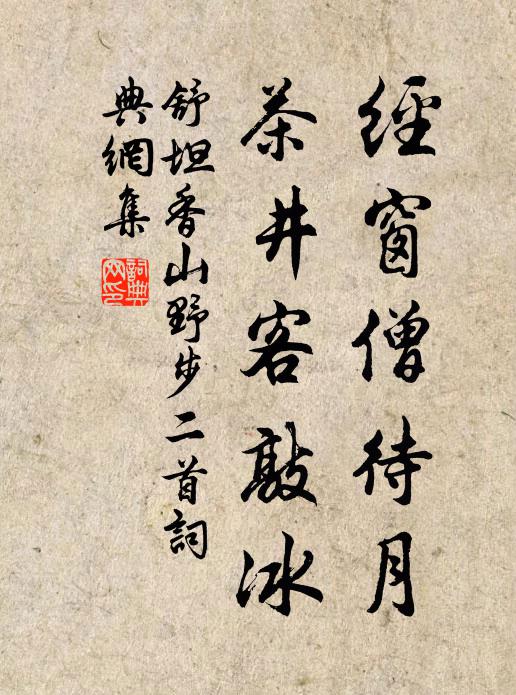 經窗僧待月
茶井客敲冰
舒坦香山野步二首詞
典網集
詞典網印